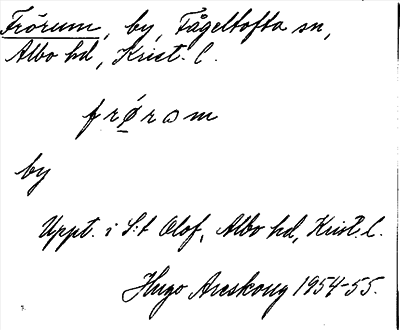 Frörum, by, Fågeltofta sn,
Albo hd, Krist. l.
frø̀rɔm
by
Uppt. i S:t Olof, Albo hd, Krist. l.
Hugo Areskoug 1954-55.